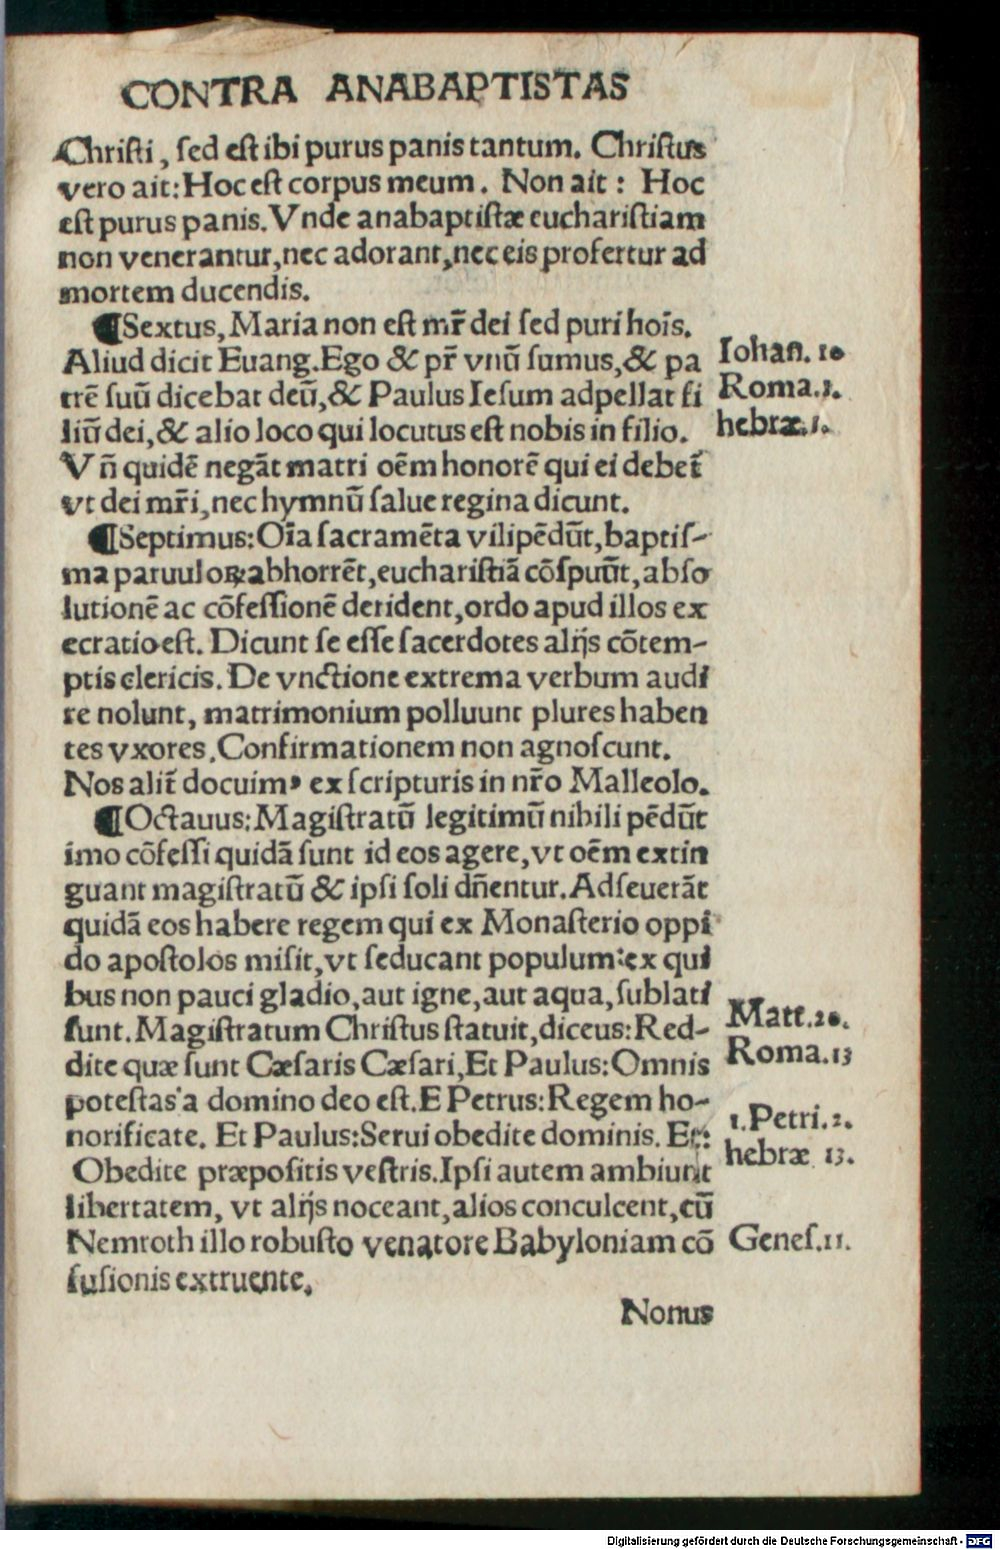 CONTRA ANABAPTISTAS
Christi, sed est ibi purus panis tantum. Christus
vero ait: Hoc est corpus meum. Non ait: Hoc
est purus panis. Vnde anabaptistæ eucharistiam
non venerantur, nec adorant, nec eis profertur ad
mortem ducendis.
¶Sextus, Maria non est mr̃ dei sed puri hoı̃s.
Aliud dicit Euang. Ego & pr̃ vnū sumus, & pa
Iohan. 10
trē suū dicebat deū, & Paulus Iesum adpellat fi
Roma. 1.
liū dei, & alio loco qui locutus est nobis in filio.
hebræ. 1.
Vñ quidē negāt matri oēm honorē qui ei debet̃
vt dei mr̃i, nec hymnū salue regina dicunt.
¶Septimus: Oı̃a sacramēta vilipēdūt, baptis-
ma paruuloꝝ abhorrēt, eucharistiā cōspuūt, abso
lutionē ac cōfessionē derident, ordo apud illos ex
ecratio est. Dicunt se esse sacerdotes alijs cōtem-
ptis clericis. De vnctione extrema verbum audi
re nolunt, matrimonium polluunt plures haben
tes vxores. Confirmationem non agnoscunt.
Nos alit̃ docuimꝰ ex scripturis in nr̃o Malleolo.
¶Octauus: Magistratū legitimū nihili pēdūt
imo cōfessi quidā sunt id eos agere, vt oēm extin
guant magistratū & ipsi soli dñentur. Adseuerāt
quidā eos habere regem qui ex Monasterio oppi
do apostolos misit, vt seducant populum: ex qui
bus non pauci gladio, aut igne, aut aqua, sublati
sunt. Magistratum Christus statuit, diceus: Red-
Matt. 20.
dite quæ sunt Cæsaris Cæsari, Et Paulus: Omnis
Roma. 13
potestas a domino deo est. E Petrus: Regem ho-
norificate. Et Paulus: Serui obedite dominis. Et:
1. Petri. 2.
Obedite præpositis vestris. Ipsi autem ambiunt
hebræ 13.
libertatem, vt alijs noceant, alios conculcent, cū
Nemroth illo robusto venatore Babyloniam cō
Genes. 11.
fusionis extruente.
Nonus
Digitalisierung gefördert durch die Deutsche Forschungsgemeinschaft - DFG